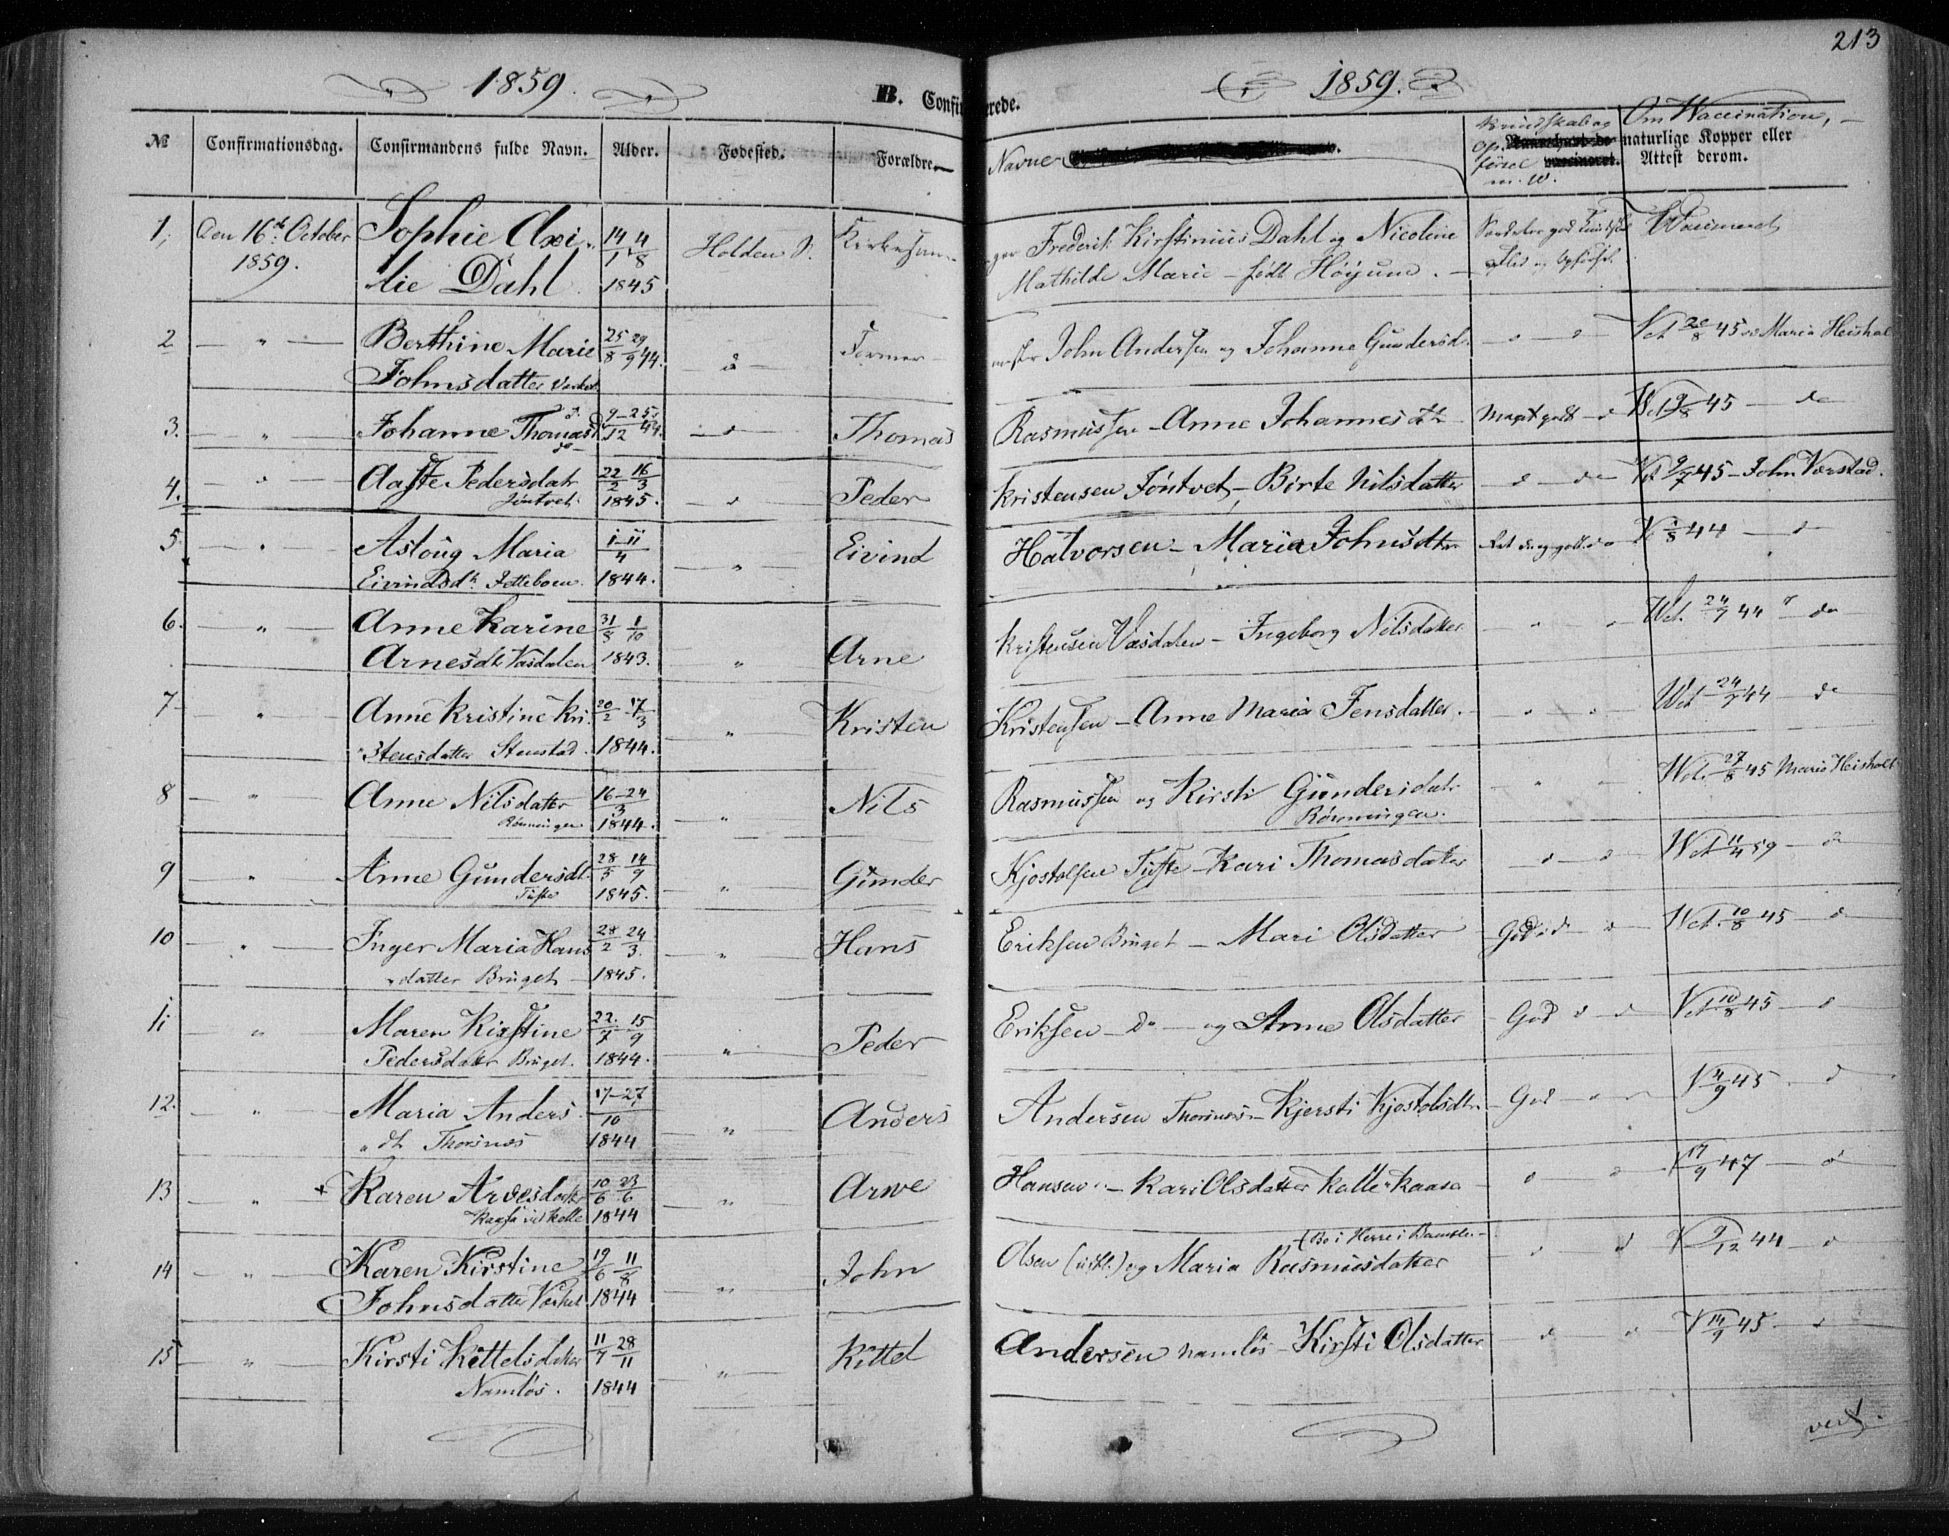 213
1859. B. Confirmerede. 1859.
No Confirmationsdag. Confirmandens fulde Navn. Alder. Fødested. Forældre Navne Kundskab og Opførsel m. v. Om Vaccination, naturlige Kopper eller Attest derom.
1, Den 16de October 1859. Sophie Axi-
lie Dahl 14/1 4/8 1845 Holden Kirkesan- ger Frederik Kirstinius Dahl og Nicoline
Mathilde Marie - født Höyum. Vaccineret
2 " Berthine Marie
Johnsdatter Værket 25/8 29/9 44. Former mester John Andersen og Johanne Gundersd. Vct 20/8 45 Maria Heishol
3. " Johanne Thomasd. 9-25/12 44. Thomas Rasmussen - Anne Johannesdt Meget godt 45 - do
4. " Aaste Pedersdatr
Jöntvet 22/2 16/3 1845. Peder Kristensen Jöntvet, - Birte Nilsdatter Vct 9/7 45 - John Værstad.
5 " Aslöug Maria
Eivindsdt. 1-11/4 1844. " Eivind Halvorsen - Maria Johnsdtr 44
6. " Anne Karine
Arnesdt Vasdalen 31/8 1/10 1843. " Arne Kristensen Vasdalen - Ingeborg Nilsdatter Vct. 24/7 44 do
7 " Anne Kristine Kri-
stensdatter Stenstad 20/2 17/3 1844. " Kristen Kristensen - Anne Maria Jensdatter. Vct 24/7 44 do
8 " Anne Nilsdatter
Rönningen 16-24/3 1844. " Nils Rasmussen og Kirsti Gündersdatr
Rönningen. Vct. 27/8 45 Maria Heisholt
9 " Anne Gündersdt.
Tufte 28/5 14/9 1845. " Günder Kjostolsen Tufte - Kari Thomasdater Vct 11/4 59
10 " Inger Maria Hans
datter Brüget 28/2 24/3. 1845. " Hans Eriksen Brüget - Mari Olsdatter God Vct. 10/8 45
11 " Maren Kirstine
Pedersdatr Brüget. 22./7 15/9 1844. " Peder Eriksen - do - og Anne Olsdatter God Vct 10/8 45
12. " Maria Anders-
dt Thorsnes 17-27/10 1844 " Anders Andersen Thorsnes - Kjersti Kjostolsdtr God V 4/9 45
13 " + Karen Arvesdatter
Kaasa ved Kolle 10/6 23/6 1844 " Arve Hansen - Kari Olsdatter Kolle Kaasa V 17/9 47
14 " Karen Kirstine
Johnsdatter Værket 19/6 11/8 1844 " John Olsen og Maria Rasmusdatter (Bo i Herre i Bamble - V 9/12 44
15 " Kirsti Kittelsdatter
Namlös. 11/7 28/11 1844 " Kittel Andersen Namlös - Kirsti Olsdatter V 14/9 45.
vert.